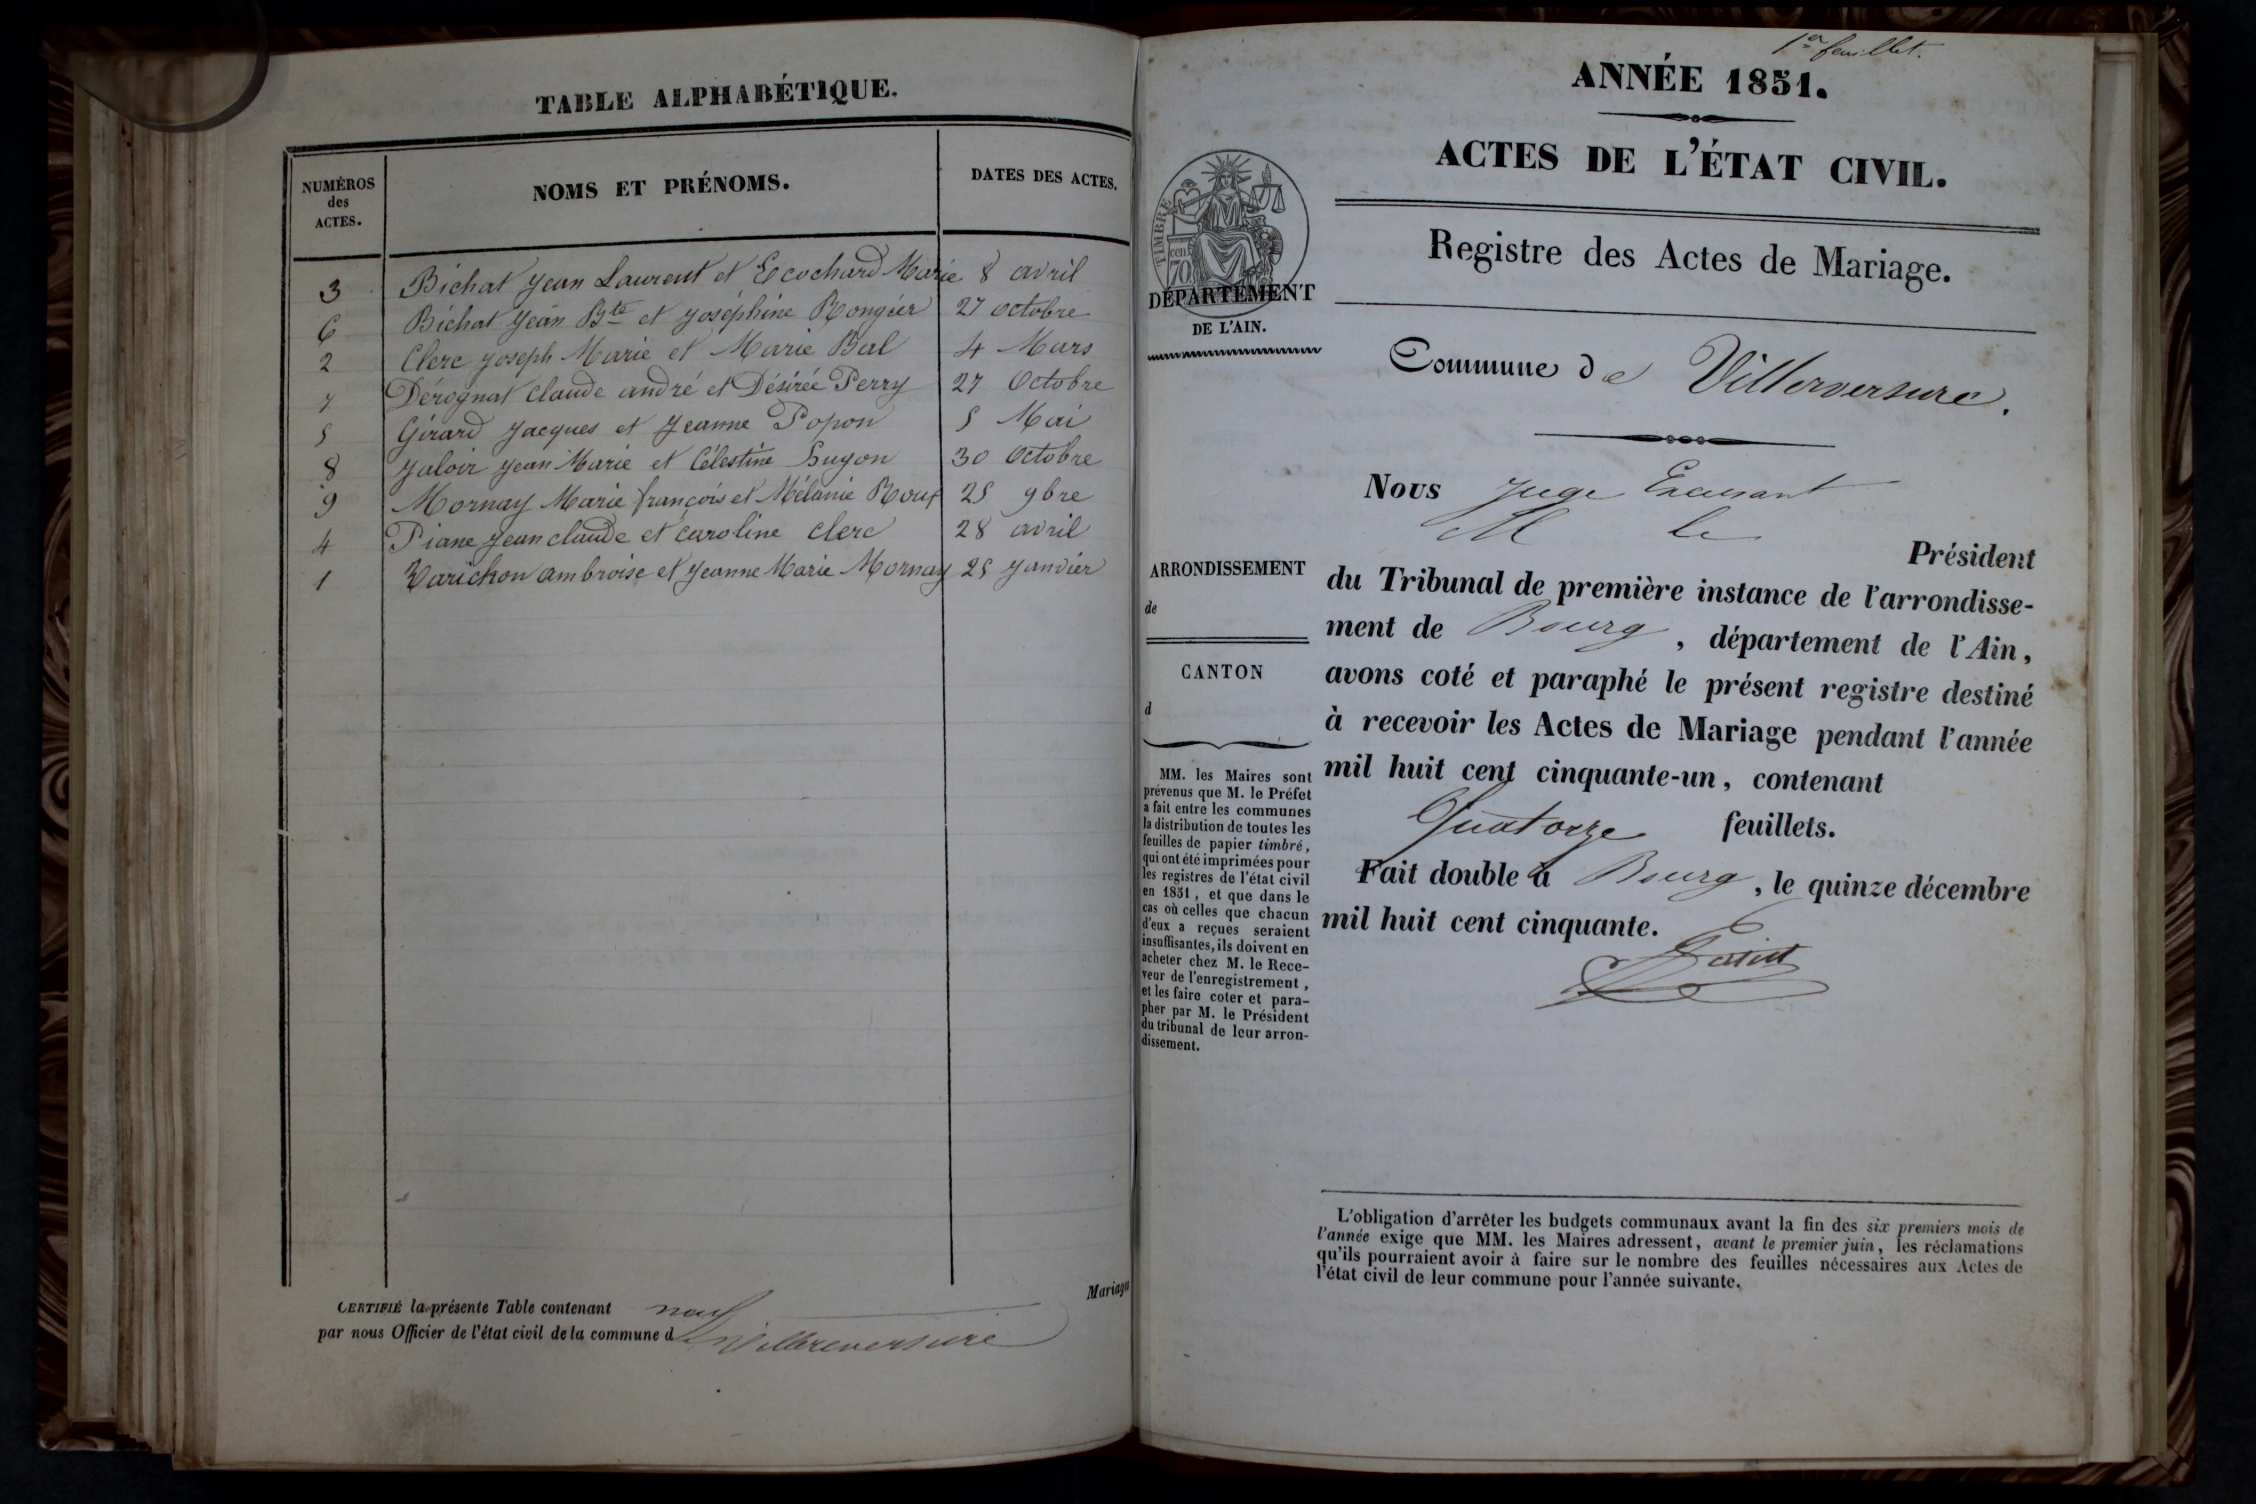 TABLE ALPHABÉTIQUE.
NUMÉROS
des
ACTES.
NOMS ET PRÉNOMS.
DATES DES ACTES.
3 Bichat Jean Laurent et Ecochard Marie 8 avril
6 Bichat Jean Bte et Joséphine Rongier 27 octobre
2 Clerc Joseph Marie et Marie Bal 4 Mars
7 Dérognat Claude andré et Désirée Perry 27 Octobre
5 Girard Jacques et Jeanne Popon 5 Mai
8 Jaloir Jean Marie et Célestine Hugon 30 Octobre
9 Mornay Marie françois et Mélanie Roux 25 9bre
4 Piane Jean claude et Caroline Clerc 28 avril
1 Varichon ambroise et Jeanne Marie Mornay 25 Janvier
Mariages
CERTIFIÉ la présente Table contenant neuf
par nous Officier de l'état civil de la commune d Villereversure
1er feuillet.
ANNÉE 1851.
ACTES DE L'ÉTAT CIVIL.
Registre des Actes de Mariage.
TIMBRE
70
DÉPARTEMENT
DE L'AIN.
Commune de Villereversure.
ARRONDISSEMENT
de
CANTON
d
MM. les Maires sont
prévenus que M. le Préfet
a fait entre les communes
la distribution de toutes les
feuilles de papier timbré,
qui ont été imprimées pour
les registres de l'état civil
en 1851, et que dans le
cas où celles que chacun
d'eux a reçues seraient
insuffisantes, ils doivent en
acheter chez M. le Rece-
veur de l'enregistrement,
et les faire coter et para-
pher par M. le Président
du tribunal de leur arron-
dissement.
Nous Juge
M le
Président
du Tribunal de première instance de l'arrondisse-
ment de Bourg, département de l'Ain,
avons coté et paraphé le présent registre destiné
à recevoir les Actes de Mariage pendant l'année
mil huit cent cinquante-un, contenant
Quatorze feuillets.
Fait double à Bourg, le quinze décembre
mil huit cent cinquante.
L'obligation d'arrêter les budgets communaux avant la fin des six premiers mois de
l'année exige que MM. les Maires adressent, avant le premier juin, les réclamations
qu'ils pourraient avoir à faire sur le nombre des feuilles nécessaires aux Actes de
l'état civil de leur commune pour l'année suivante.